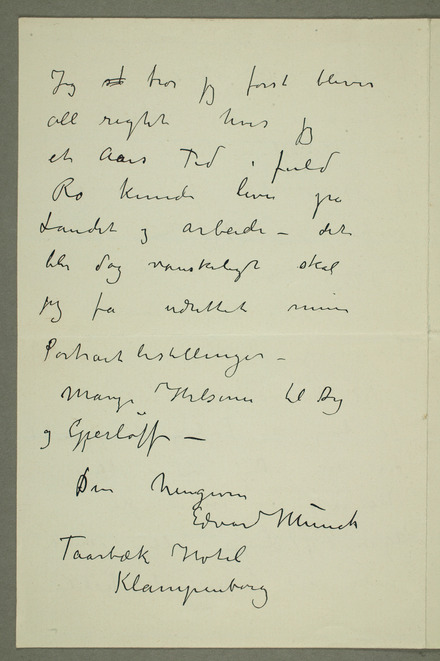 Jeg tror jeg først bliver
all reight hvis jeg
et Aars Tid i fuld
Ro kunde leve på
Landet og arbeide – det
blir dog vanskeligt skal
jeg få udrettet mine
Portrætbestillinger –
Mange Hilsener til Dig
og Gjerløff –
Din hengivne
Edvard Munch
Taarbæk Hotel
Klampenborg